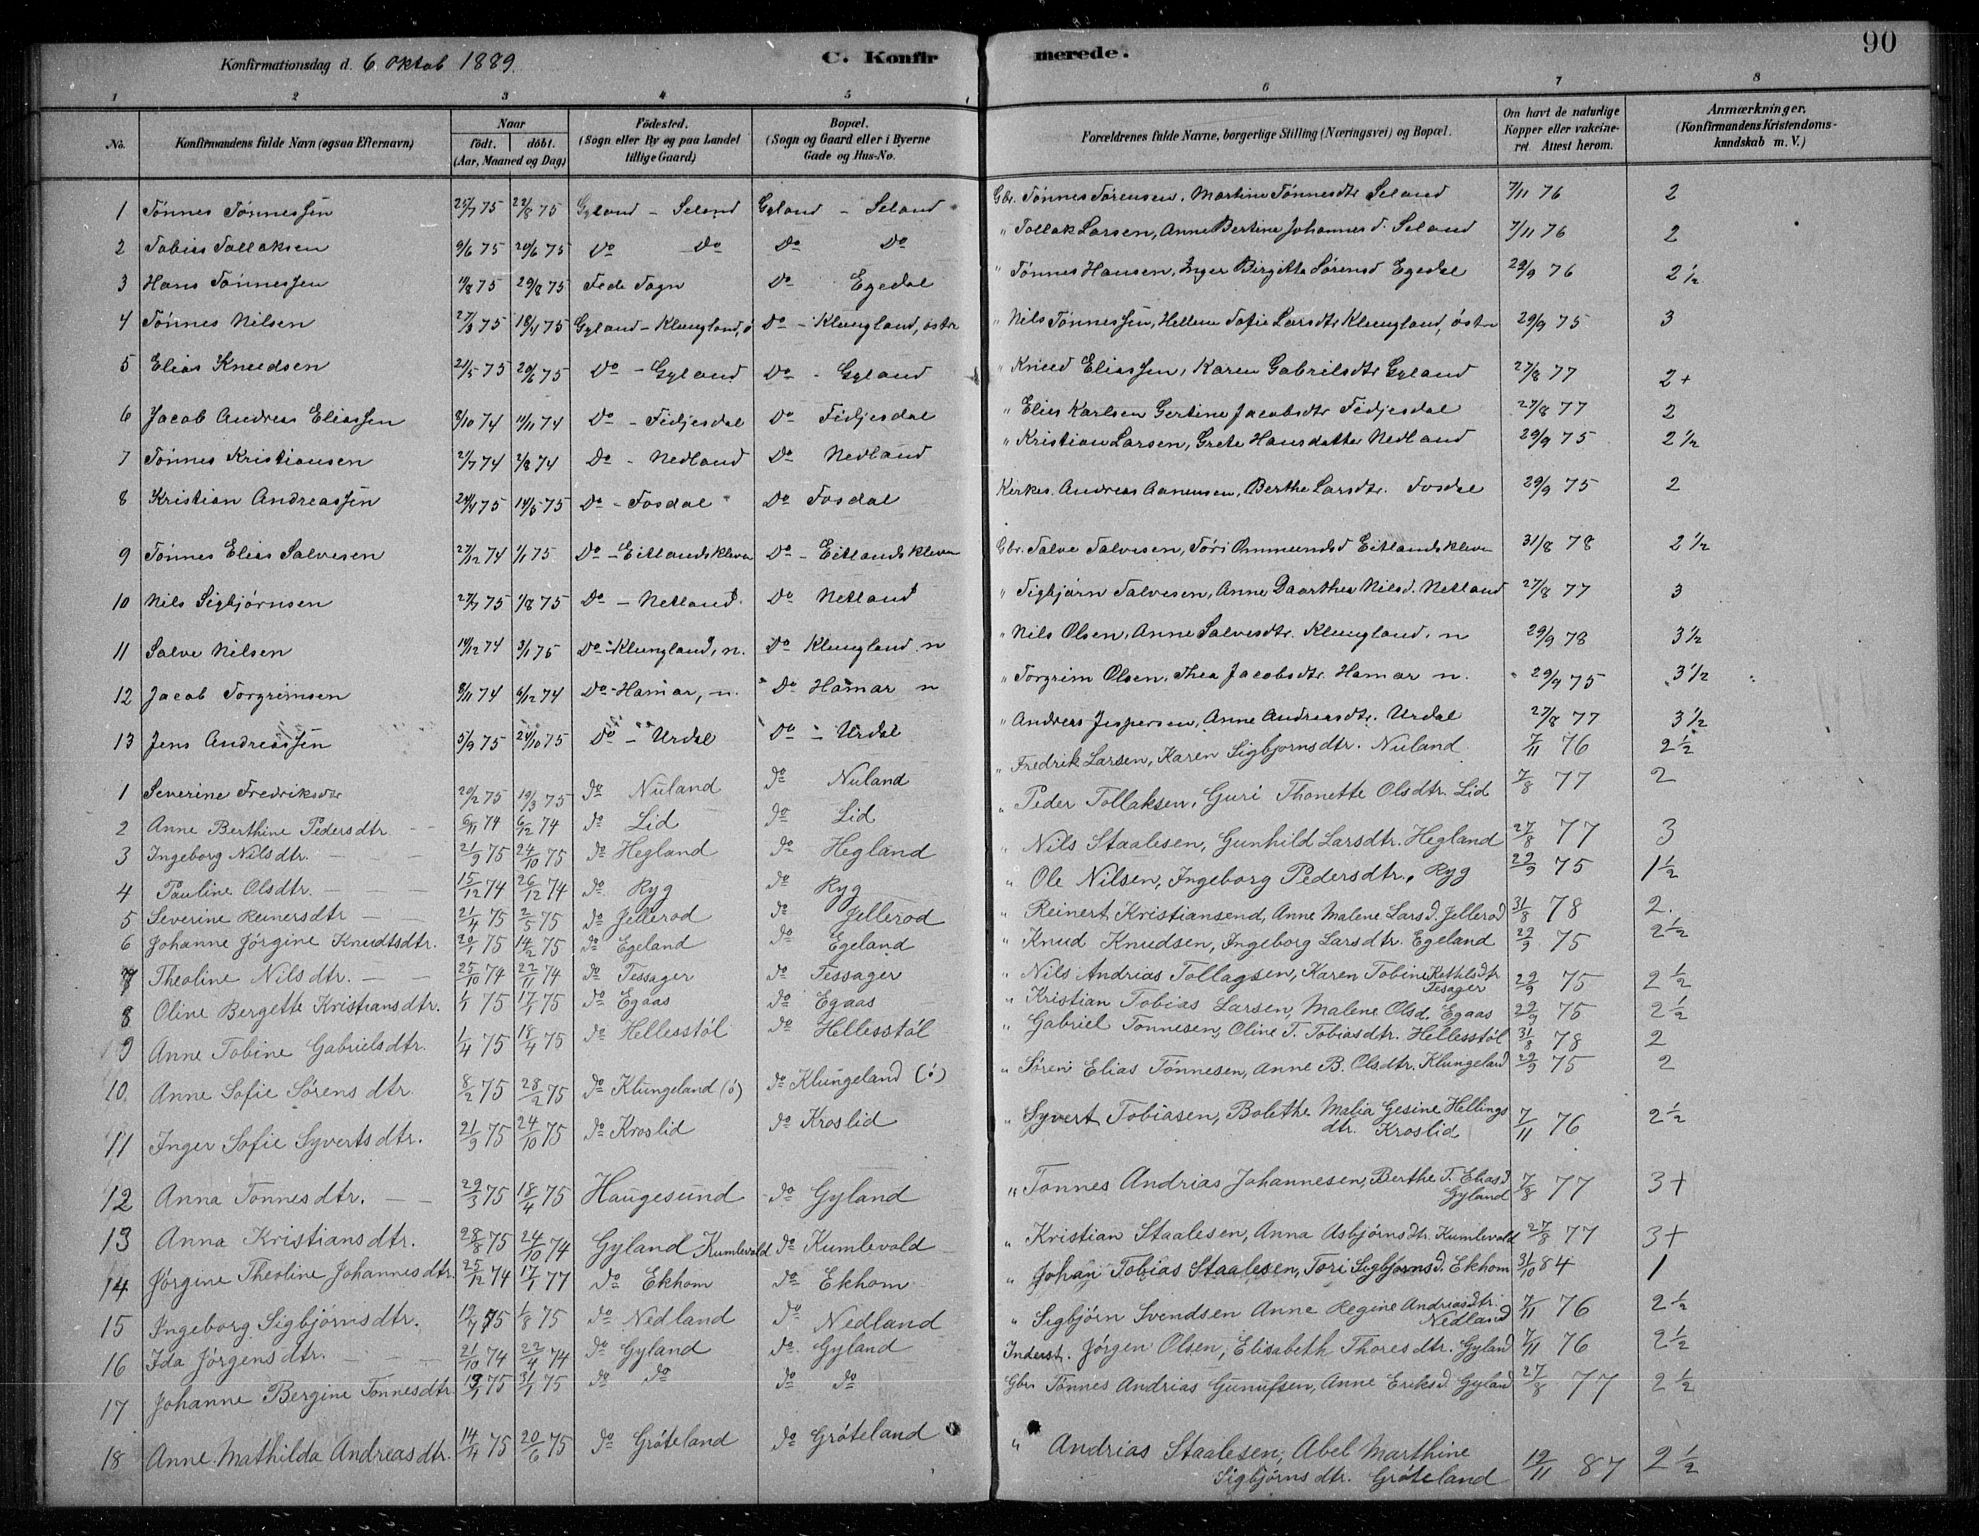 90
Konfirmationsdag d. 6 Oktob 1889.
C. Konfirmerede.
1 2 3 4 5 6 7 8
No. Konfirmandens fulde Navn (ogsaa Efternavn) Naar født. døbt. (Aar, Maaned og Dag) Fødested. (Sogn eller By og paa Landet tillige Gaard) Bopæl. (Sogn og Gaard eller i Byerne Gade og Hus-No. Forældrenes fulde Navne, borgerlige Stilling (Næringsvei) og Bopæl. Om havt de naturlige Kopper eller vakcineret Attest herom. Anmærkninger. (Konfirmandens Kristendomskundskab m. V.)
1 Tønnes Tønnessen 25/7 75 22/8 75 Gyland - Seland Gyland - Seland Gbr. Tønnes Sørensen, Martine Tønnesdtr Seland 7/11 76 2
2 Tobias Tollaksen 9/6 75 20/6 75 Do Do Do Do " Tollak Larsen, Anne Bertine Johannesd. Seland 7/11 76 2
3 Hans Tønnessen 11/8 75 29/8 75 Fede Sogn Do Egedal " Tønnes Hansen, Inger Birgitte Sørensd Egedal 29/9 76 2 1/2
4 Tønnes Nilsen 27/3 75 18/4 75 Gyland - Klungland, ø Do - Klungland, østre " Nils Tønnessen, Hellene Sofie Larsdtr Klungland, østre 29/9 75 3
5 Elias Knudsen 21/5 75 20/6 75 Do - Gyland Do - Gyland " Knud Eliassen, Karen Gabrilsdtr Gyland 27/8 77 2+
6 Jacob Andreas Eliassen 8/10 74 11/11 74 Do - Fidjesdal Do Fidjesdal " Elias Karlsen Gertine Jacobsdtr Fidjesdal 27/8 77 2
7 Tønnes Kristiansen 2/7 74 2/8 74 Do - Nedland Do Nedland " Kristian Larsen, Grete Hansdatter Nedland 29/9 75 2 1/2
8 Kristian Andreassen 24/4 75 14/5 75 Do - Fosdal Do Fosdal Kirkes. Andreas Aanensen, Berthe Larsdtr. Fosdal 29/9 75 2
9 Tønnes Elias Salvesen 27/12 74 1/1 75 Do - Eitlandskleven Do - Eitlandskleven Gbr. Salve Salvesen, Tøri Ommundsd Eitlandskleven 31/8 78 2 1/2
10 Nils Sigbjørnsen 24/7 75 1/8 75 Do - Netland. Do Netland " Sigbjørn Salvesen, Anne Daarthea Nilsd. Netland 27/8 77 3
11 Salve Nilsen 14/12 74 3/1 75 Do - Klungland, n. Do Klungland. n " Nils Olsen, Anne Salvesdtr. Klungland, n 29/9 78 3 1/2
12 Jacob Torgrimsen 8/11 74 6/12 74 Do - Hamar, n. Do Hamar n " Torgrim Olsen, Thea Jacobsdtr. Hamar n. 29/9 75 3 1/2
13 Jens Andreassen 5/9 75 24/10 75 Do - Urdal Do - Urdal " Andreas Jespersen, Anne Andreasdtr. Urdal 27/8 77 3 1/2
1 Severine Fredriksdtr 20/2 75 19/3 75 do Nuland do Nuland " Fredrik Larsen, Karen Sigbjørnsdtr. Nuland 7/11 76 2 1/2
2 Anne Berthine Pedersdtr 6/11 74 6/12 74 do Lid do Lid " Peder Tollaksen, Guri Thonette Olsdtr. Lid 7/8 77 2
3 Ingeborg Nilsdtr. 21/9 75 24/10 75 do Hegland do Hegland " Nils Staalesen, Gunhild Larsdtr. Hegland 27/8 77 3
4 Pauline Olsdtr. 15/12 74 26/12 74 do Ryg do Ryg " Ole Nilsen, Ingeborg Pedersdtr. Ryg 29/9 75 1 1/2
5 Severine Reinersdtr 21/4 75 2/5 75 do Jellerod do Jellerod " Reinert Kristiansend, Anne Malene Larsd. Jellerod 31/8 78 2.
6 Johanne Jørgine Knudtsdtr. 20/1 75 14/2 75 do Egeland do Egeland " Knud Knudsen, Ingeborg Larsdtr. Egeland 29/9 75 2 1/2
7 Theoline Nilsdtr. 25/10 74 22/11 74 do Tessager do Tessager " Nils Andrias Tollagsen, Karen Tobine Kethlsdtr Tesager 29/9 75 2 1/2
8 Oline Bergette Kristiansdtr. 1/1 75 17/1 75 do Egaas do Egaas " Kristian Tobias Larsen, Malene Olsd. Egaas 29/9 75 2 1/2
9 Anne Tobine Gabrielsdtr. 1/4 75 18/4 75 do Hellesstøl do Hellesstøl " Gabriel Tønnesen, Oline T. Tobiasdtr. Hellesstøl 31/8 78 2
10. Anne Sofie Sørensdtr. 8/2 75 28/2 75 do Klungeland (ø) do Klungeland (ø) " Søren Elias Tønnesen, Anne B. Olsdtr. Klungeland 29/9 75 2
11 Inger Sofie Syvertsdtr. 21/9 75 24/10 75 do Kroslid do Kroslid " Syvert Tobiasen, Bolethe Malia Gesine Hellings dtr. Kroslid 7/11 76 2 1/2
12 Anna Tønnesdtr. 29/3 75 18/4 75 Haugesund do Gyland " Tønnes Andrias Johannesen, Berthe T. Eliasd Gyland 7/8 77 3+
13 Anna Kristiansdtr. 28/8 75 24/10 74 Gyland Kumlevold do Kumlevold " Kristian Staalesen, Anna Asbjørnsdtr. Kumlevold 27/8 77 3+
14 Jørgine Theoline Johannesdtr. 25/12 74 17/1 77 do Ekhom do Ekhom " Johan Tobias Staalesen, Tori Sigbjørnsd. Ekhom 31/10 84 1
15 Ingeborg Sigbjørnsdtr. 12/7 75 1/8 75 do Nedland do Nedland " Sigbjørn Svendsen Anne Regine Andriasdtr. Nedland 7/11 76 2 1/2
16 Ida Jørgensdtr. 21/10 74 22/4 74 do Gyland do Gyland Inderst. Jørgen Olsen, Elisabeth Thoresdtr. Gyland 7/11 76 2 1/2
17 Johanne Bergine Tønnesdtr 13/1 75 31/1 75 do do do do Gbr Tønnes Andrias Gunufsen, Anne Eriksd. Gyland 27/8 77 2 1/2
18 Anne Mathilda Andreasdtr. 14/4 75 20/6 75 do Grøteland do Grøteland " Andrias Staalesen, Abel Marthine Sigbjørnsdtr. Grøteland 19/11 87 2 1/2